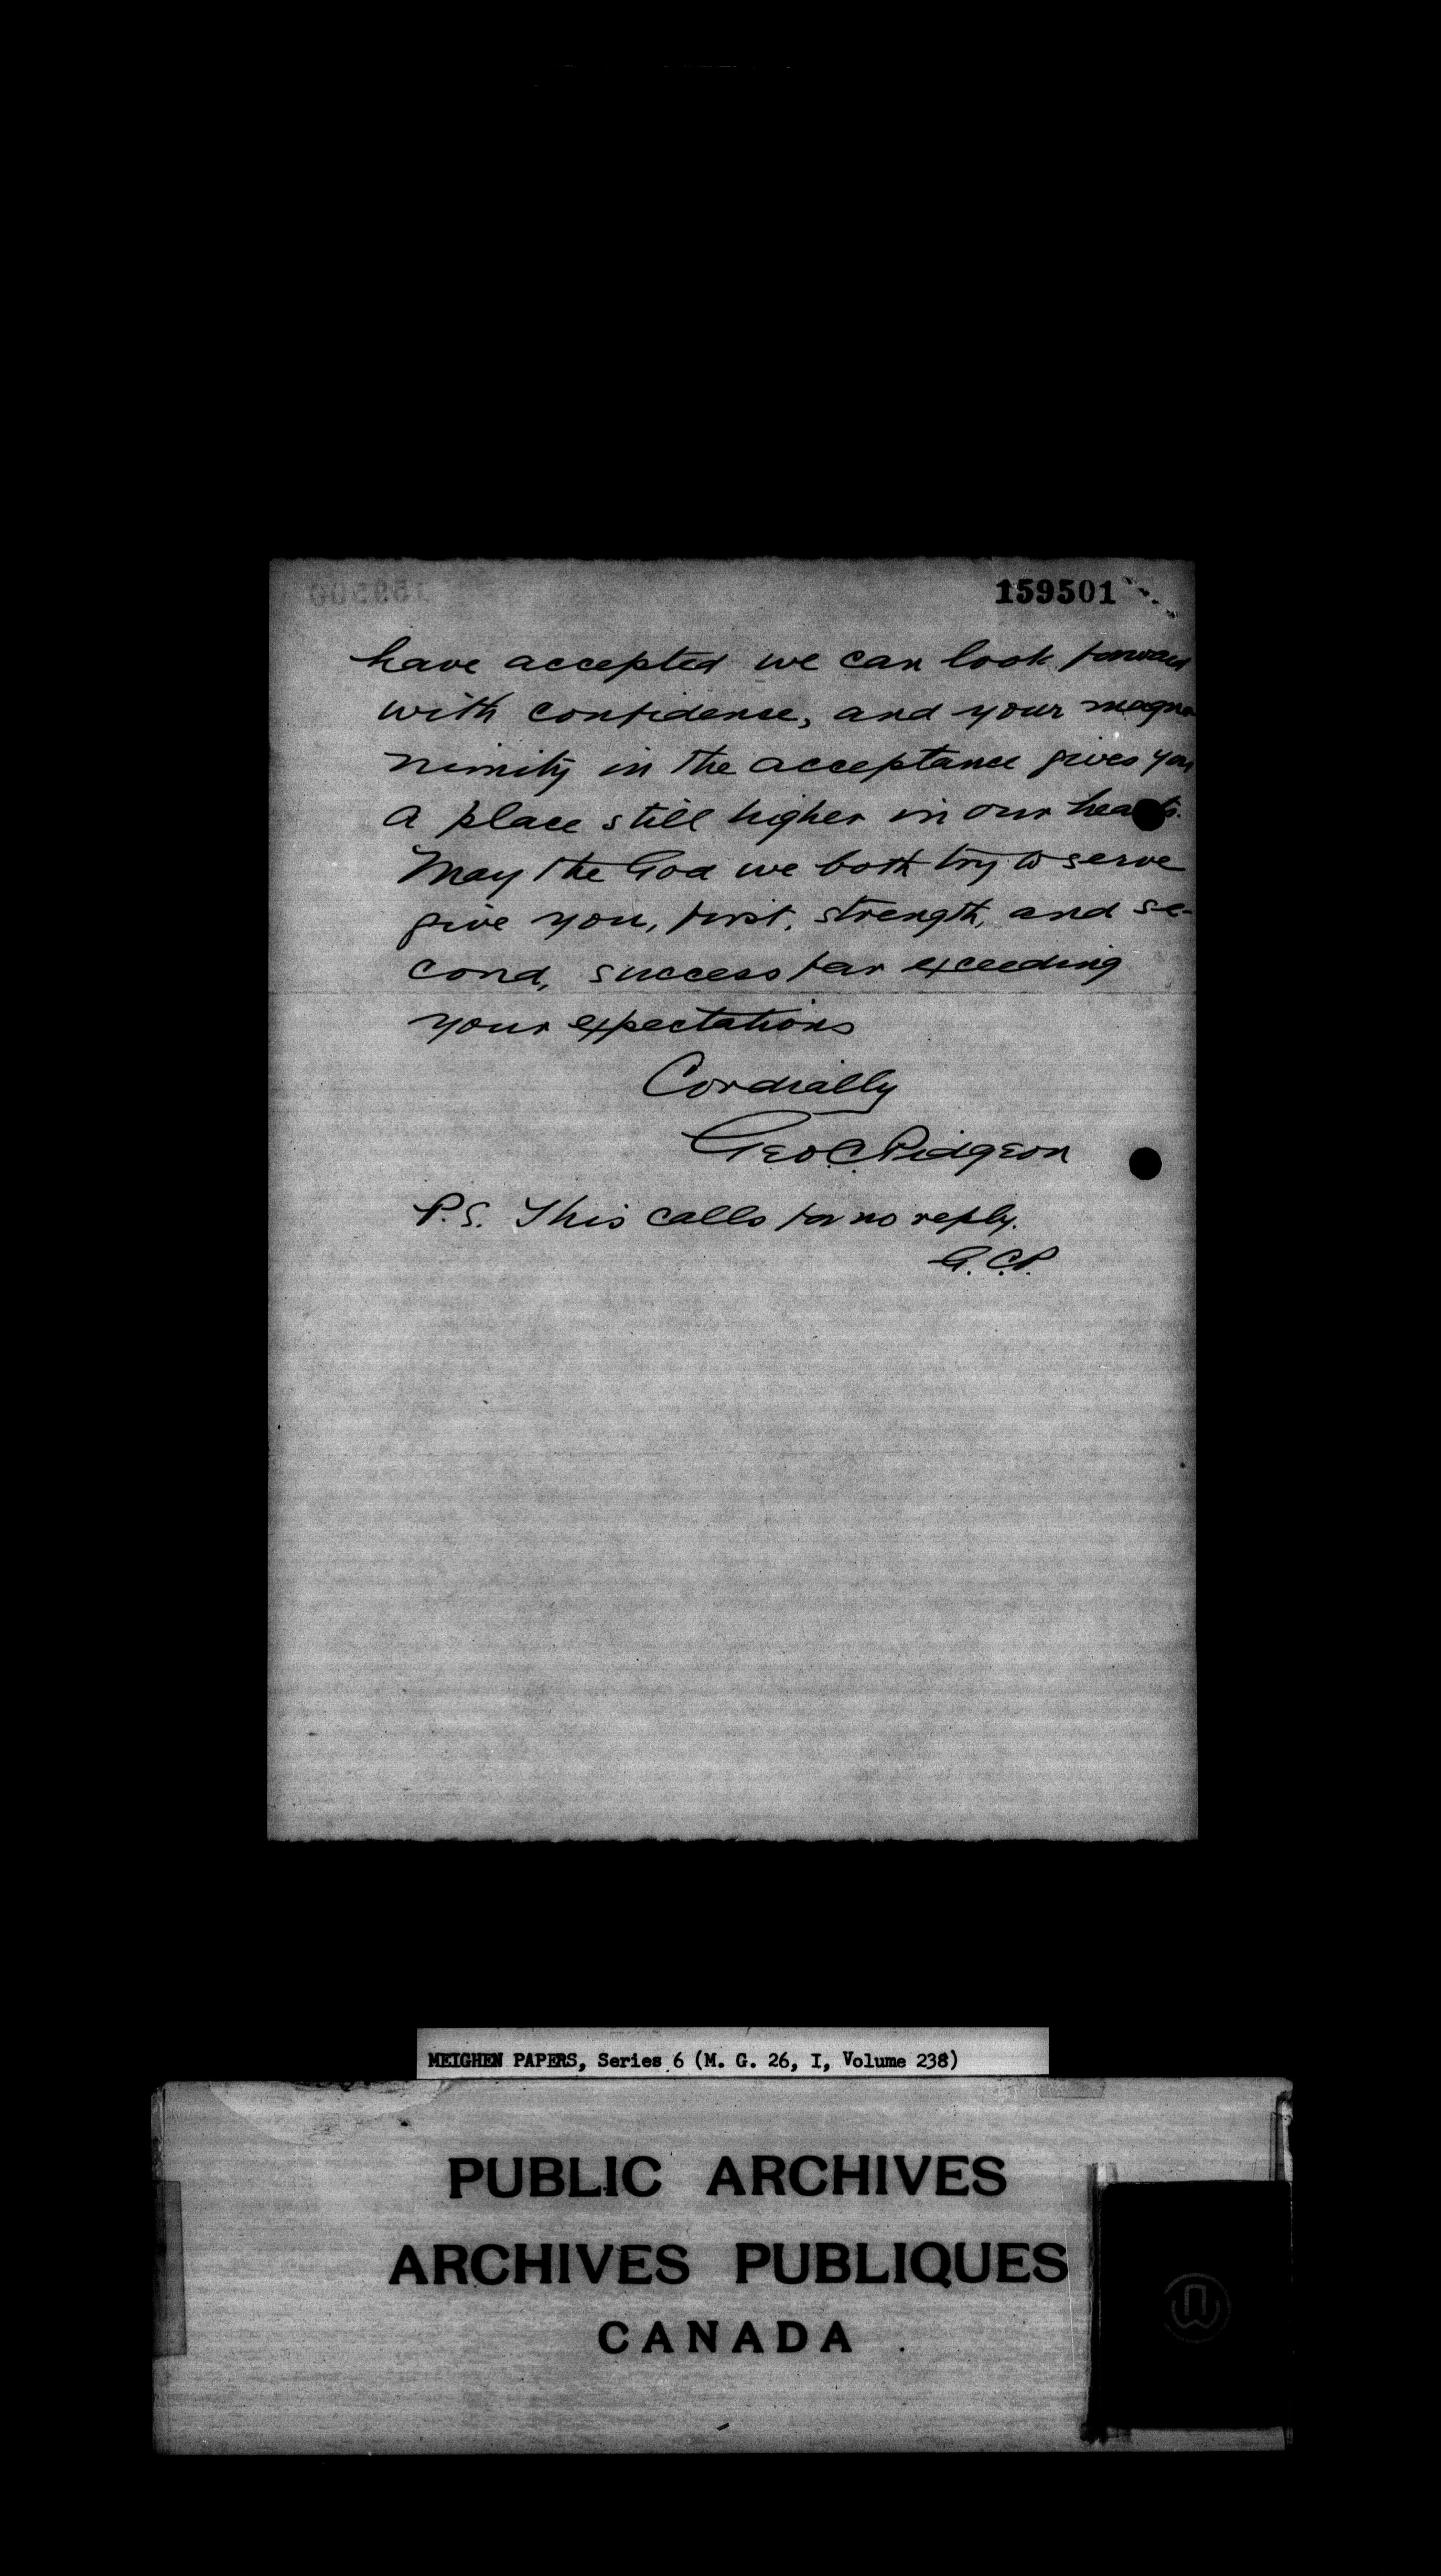 159501
have accepted we can look forward
with confidence, and your magna
nimity in the acceptance gives you
a place still higher in our hearts.
May the God we both try to serve
give you, first, strength, and se-
cond, success far exceeding
your expectations
Cordially
Geo. C. Pidgeon
P.S. This calls for no reply.
G.C.P.
MEIGHEN PAPERS, Series 6 (M. G. 26, I, Volume 238)
PUBLIC ARCHIVES
ARCHIVES PUBLIQUES
CANADA